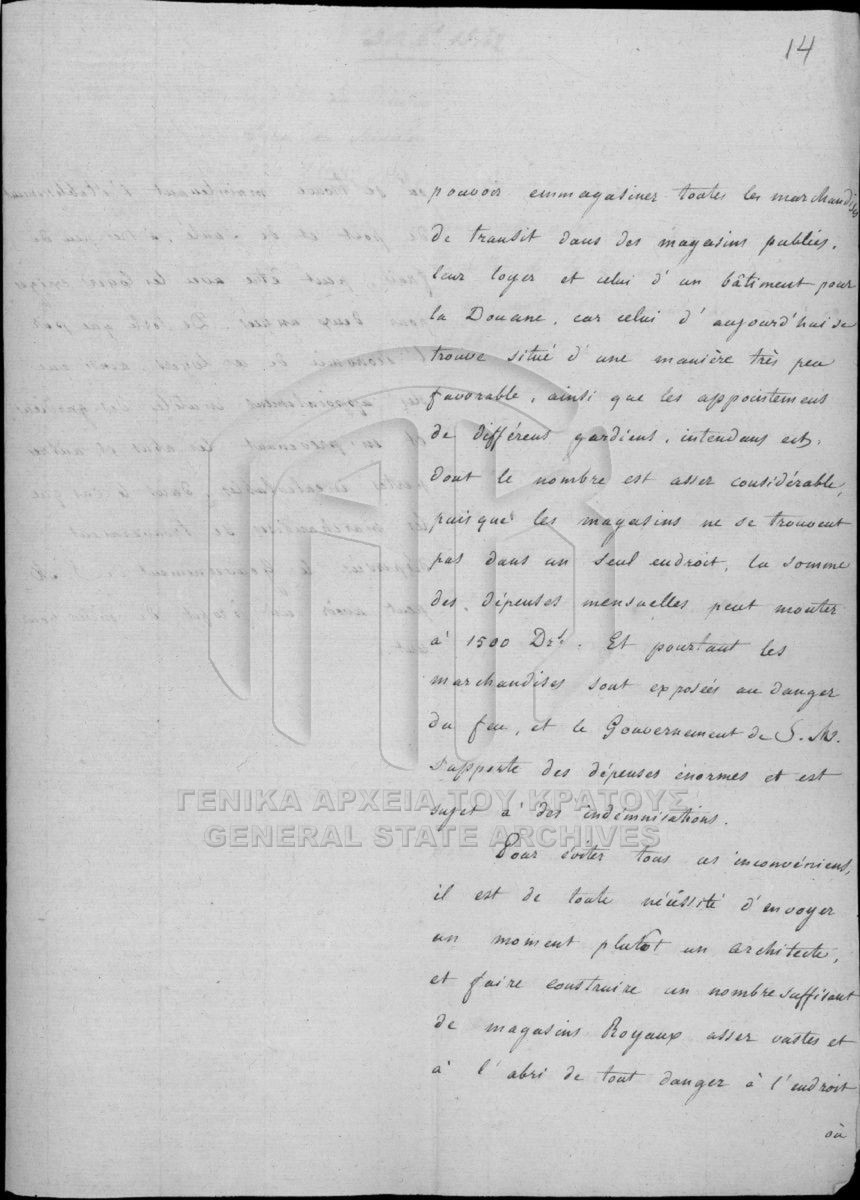 14
pouvoir emmagasiner toutes les marchandises
de transit dans des magasins publics,
leur loyer et celui d'un bâtiment pour
la Douane, car celui d'aujourd'hui se
trouve situé d'une manière très peu
favorable, ainsi que les appointemens
de différens gardiens, intendans ect,
dont le nombre est asser considérable,
puisque les magasins ne se trouvent
pas dans un seul endroit, la somme
des dépenses mensuelles peut monter
à 1500 Drs. Et pourtant les
marchandises sont exposées au danger
du feu, et le Gouvernement de S. M.
supporte des dépenses énormes et est
sujet à des indémnisations.
Pour éviter tous ces inconvéniens,
il est de toute nécéssité d'envoyer
un moment plutôt un architecte,
et faire construire un nombre suffisant
de magasins Royaux asser vastes et
à l'abri de tout danger à l'endroit
où
ΓΕΝΙΚΑ ΑΡΧΕΙΑ ΤΟΥ ΚΡΑΤΟΥΣ
GENERAL STATE ARCHIVES